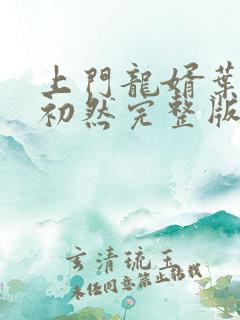 上門龍婿葉
初然完整版
玄清琉玉
未任同意禁止轉找